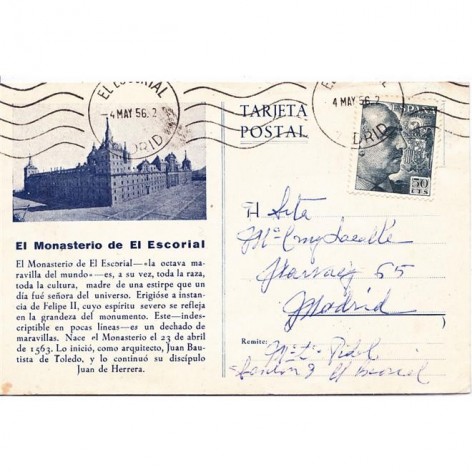 EL ESCORIAL
-4 MAY 56. 2
MADRID
TARJETA
POSTAL
4 MAY 56. 2
DRID
ESPAÑA
50
CTS
El Monasterio de El Escorial
El Monasterio de El Escorial—«la octava ma-
ravilla del mundo»—es, a su vez, toda la raza,
toda la cultura, madre de una estirpe que un
día fué señora del universo. Erigióse a instan-
cia de Felipe II, cuyo espíritu severo se refleja
en la grandeza del monumento. Este—indes-
criptible en pocas líneas—es un dechado de
maravillas. Nace el Monasterio el 23 de abril
de 1563. Lo inició, como arquitecto, Juan Bau-
tista de Toledo, y lo continuó su discípulo
Juan de Herrera.
Srta
Mª
Narvaez 65
Madrid
Remite: Mª Pidal
El Escorial